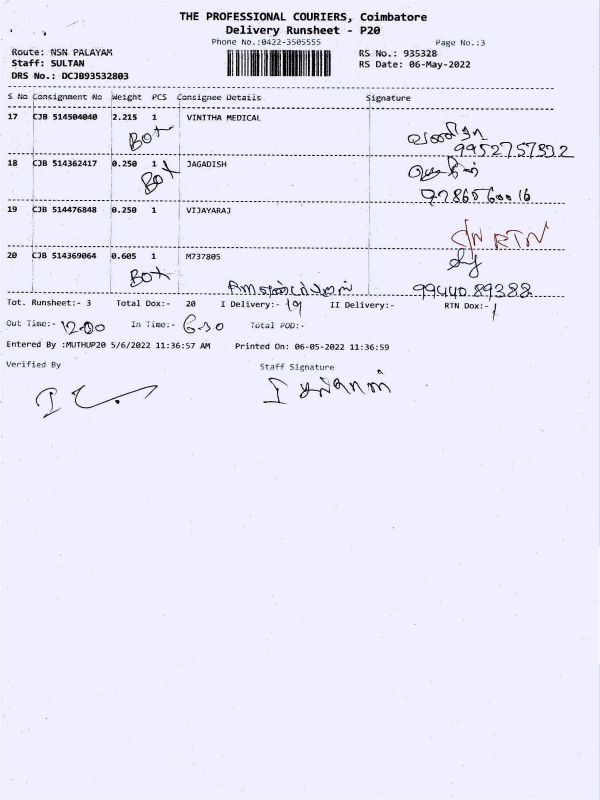 THE PROFESSIONAL COURIERS, Coimbatore
Delivery Runsheet - P20
Phone No.:0422-3505555 Page No.:3
Route: NSN PALAYAM RS No.: 935328
Staff: SULTAN RS Date: 06-May-2022
DRS No.: DCJB93532803
S No Consignment No Weight PCS Consignee Details Signature
17 CJB 514504040 2.215 1 VINITHA MEDICAL
Box 9952757892
18 CJB 514362417 0.250 1 JAGADISH
Box
9786560016
19 CJB 514476848 0.250 1 VIJAYARAJ
RTN
20 CJB 514369064 0.605 1 M737805
Box
99440 89388
Tot. Runsheet:- 3 Total Dox:- 20 I Delivery:- 19 II Delivery:- RTN Dox:- 1
Out Time:- 12.00 In Time:- 6.30 Total POD:-
Entered By :MUTHUP20 5/6/2022 11:36:57 AM Printed On: 06-05-2022 11:36:59
Verified By Staff Signature